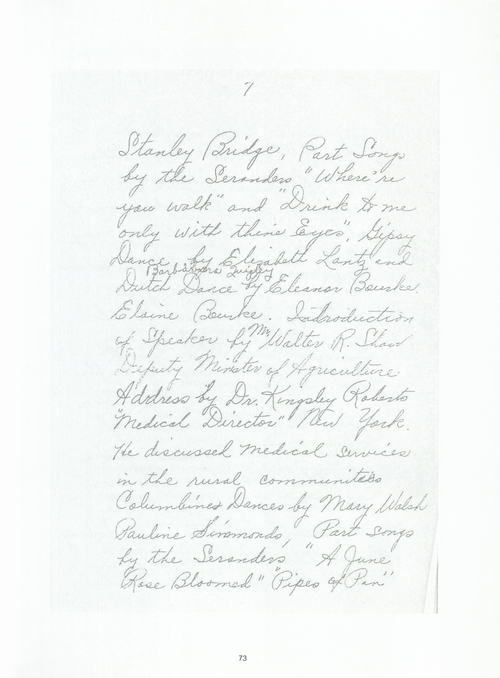 7
Stanley Bridge, Part Songs
by the Seranders "Where're
you walk" and "Drink to me
only with thine Eyes", Gipsy
Dance by Elizabeth Lantz and
Barbara Quigley
Dutch Dance by Eleanor Bourke
Elaine Bourke. Introduction
of Speaker by Mr. Walter R. Shaw
Deputy Minster of Agriculture
Address by Dr. Kingsley Roberts
"Medical Director" New York.
He discussed medical services
in the rural communities
Columbines Dances by Mary Walsh
Pauline Simmonds, Part songs
by the Seranders, "A June
Rose Bloomed" "Pipes of Pan"
73